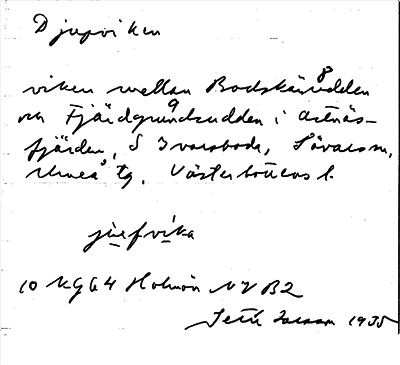 Djupviken
viken mellan Bodskärsudden
8
och Fjärdgrundsudden i Ostnäs-
9
fjärden, S Ivarsboda, Sävars sn,
Umeå tg. Västerbottens l.
juefvika
10 KG64 Holmön NV B2
1935